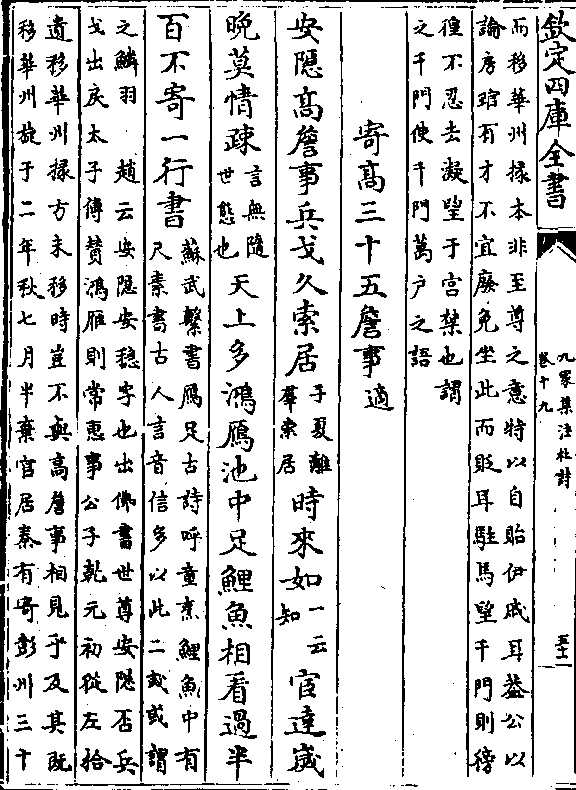 欽定四庫全書
九家集注杜詩
卷十九
五十一
而移華州掾本非至尊之意特以自貽伊戚耳蓋公以
論房琯有才不宜廢免坐此而貶耳駐馬望千門則徬
徨不忍去凝望于宮禁也謂
之千門使千門萬户之語
寄高三十五詹事適
安隱高詹事兵戈久索居子夏離羣索居時來如一云知宦達嵗
晚莫情疎言無隨世態也天上多鴻鴈池中足鯉魚相看過半
百不寄一行書蘇武繫書鴈足古詩呼童烹鯉魚中有尺素書古人言音信多以此二或或謂
之鱗羽趙云安隱安穏字也出佛書世尊安隱否兵
戈出戾太子傳賛鴻雁則常惠事公子乾元初從左拾
遺移華州掾方未移時豈不與高詹事相見乎及其既
移華州旋于二年秋七月半棄官居秦有寄彭州三十